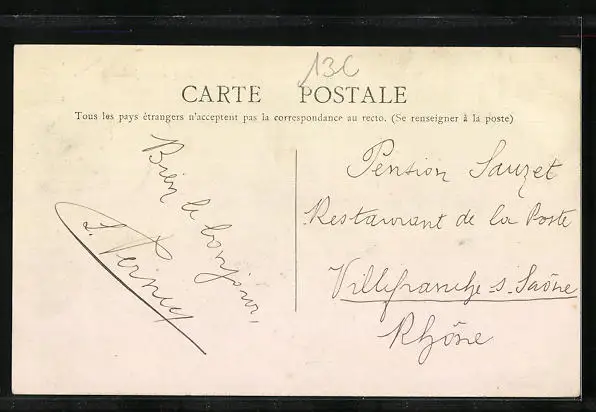 13C
CARTE POSTALE
Tous les pays étrangers n'acceptent pas la correspondance au recto. (Se renseigner à la poste)
Bien le bonjour,
Pension Sauzet
Restaurant de la Poste
Villefranche s. Saône
Rhône